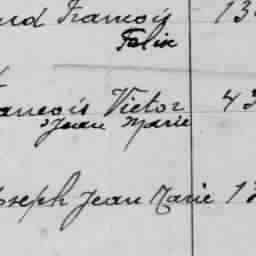 François 13
Félix
François Victor 43
Jean Marie
Joseph Jean Marie 1